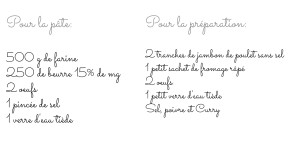 Pour la pâte:
500 g de farine
250 de beurre 15% de mg
2 oeufs
1 pincée de sel
1 verre d'eau tiède
Pour la préparation:
2 tranches de jambon de poulet sans sel
1 petit sachet de fromage râpé
2 oeufs
1 petit verre d'eau tiède
Sel, poivre et Curry